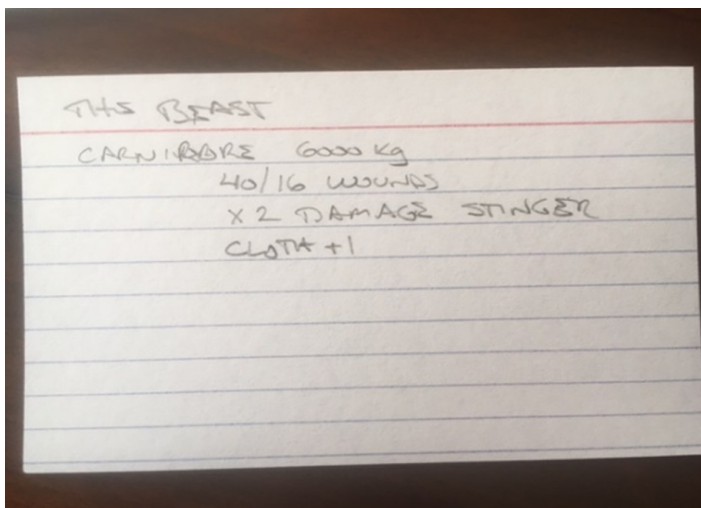 THE BEAST
CARNIVORE 6000 kg
40/16 WOUNDS
X 2 DAMAGE STINGER
CLOTH +1